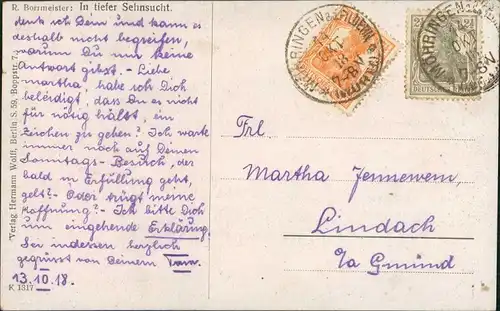 R. Borrmeister: In tiefer Sehnsucht.
denk ich Dein und kann es
deshalb nicht begreifen,
warum Du mir keine
Antwort gibst. - Liebe
Martha, habe ich Dich
beleidigt, dass Du es nicht
für nötig hältst, ein
Zeichen zu geben? Ich warte
immer noch auf Deinen
Sonntags-Besuch, der
bald in Erfüllung geht,
gelt? - Oder trügt meine
Hoffnung? - Ich bitte Dich
um eingehende Erklärung.
Sei indessen herzlich
gegrüsst von Deinem
13.10.18.
K 1317
Verlag Hermann Wolff, Berlin S. 59, Boppstr. 7.
MÖHRINGEN a.d. FILDERN
MÖHRINGEN
Frl.
Martha Jennewein,
Lindach
b/a Gmünd